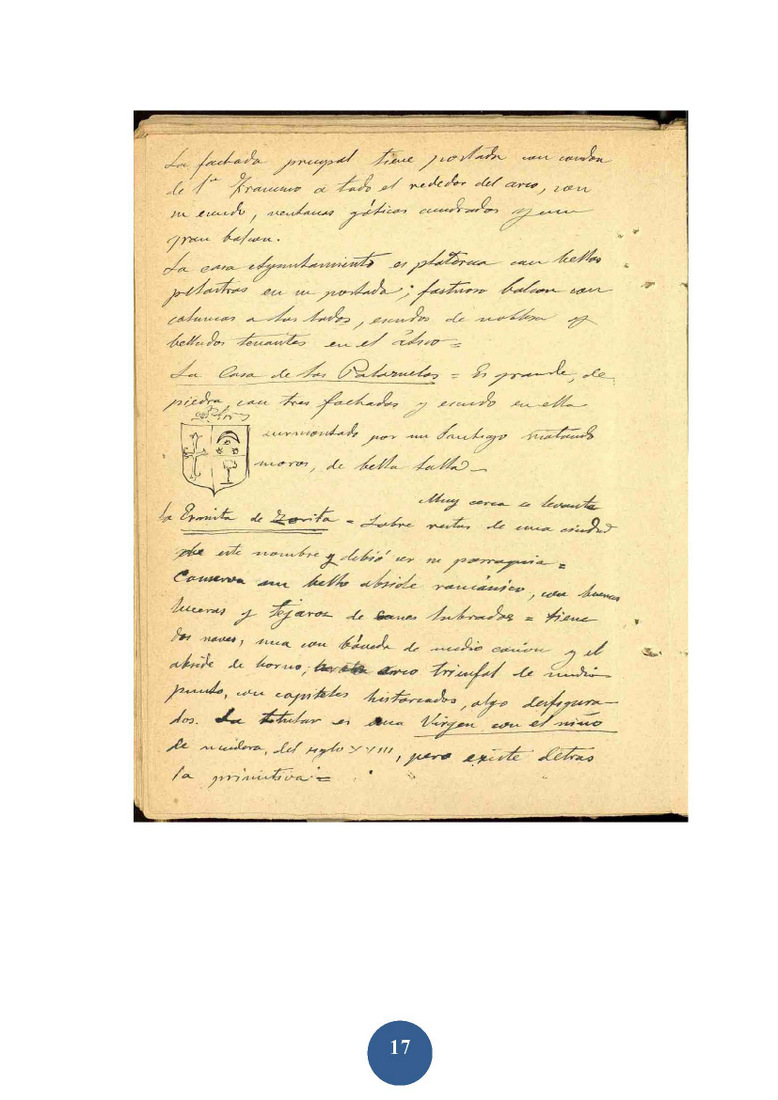 La fachada principal tiene portada con cordon
de Sn Francisco a todo el rededor del arco, con
su escudo, ventanas góticas cuadradas y un
gran balcon.
La casa Ayuntamiento es plateresca con bellas
pilastras en su portada; fastuoso balcon con
columnas a los lados, escudos de nobleza y
bellidos tenantes en el ático =
La Casa de los Palazuelos = Es grande, de
piedra, con tres fachadas y escudo en ella
surmontado por un Santiago matando
moros, de bella talla —
Muy cerca se levanta
la Ermita de Zorita = Sobre restos de una ciudad
de este nombre y debió ser su parroquia =
Conserva un bello abside románico, con buenas
luceras y tejaroz de canes labrados = tiene
dos naves, una con bóveda de medio cañon y el
abside de horno, arco triunfal de medio
punto, con capiteles historiados, algo desfigura-
dos. La titular es una Virgen con el niño
de madera, del siglo XVIII, pero existe detras
la primitiva =
17